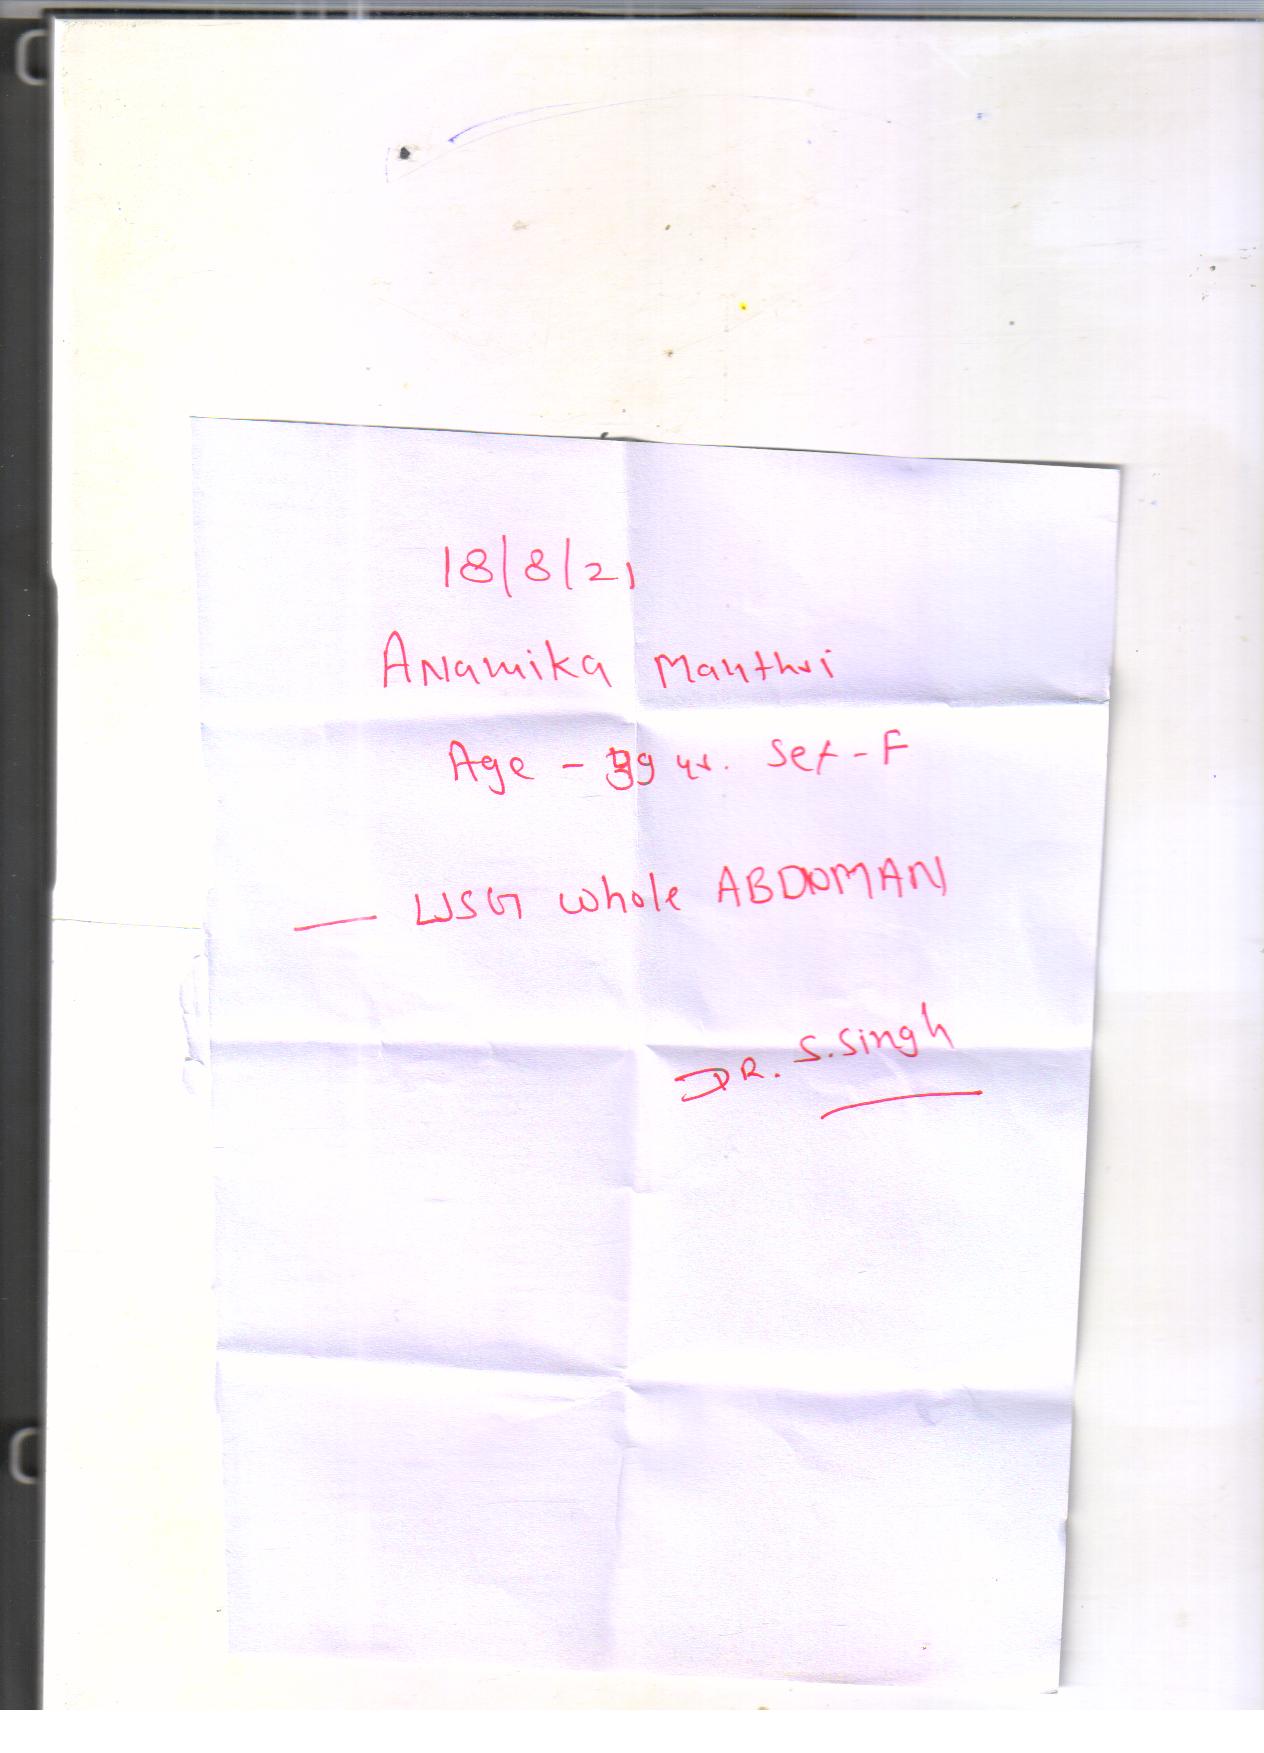 18/8/21
Anamika Manthri
Age - 39 yr. Sex - F
— USG whole ABDOMAN
DR. S. Singh